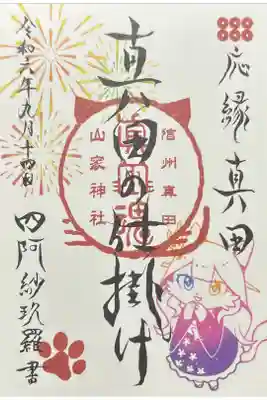 応縁 真田
信州真田
真田の仕掛け
山家神社
令和六年九月十四日
四阿紗玖羅書